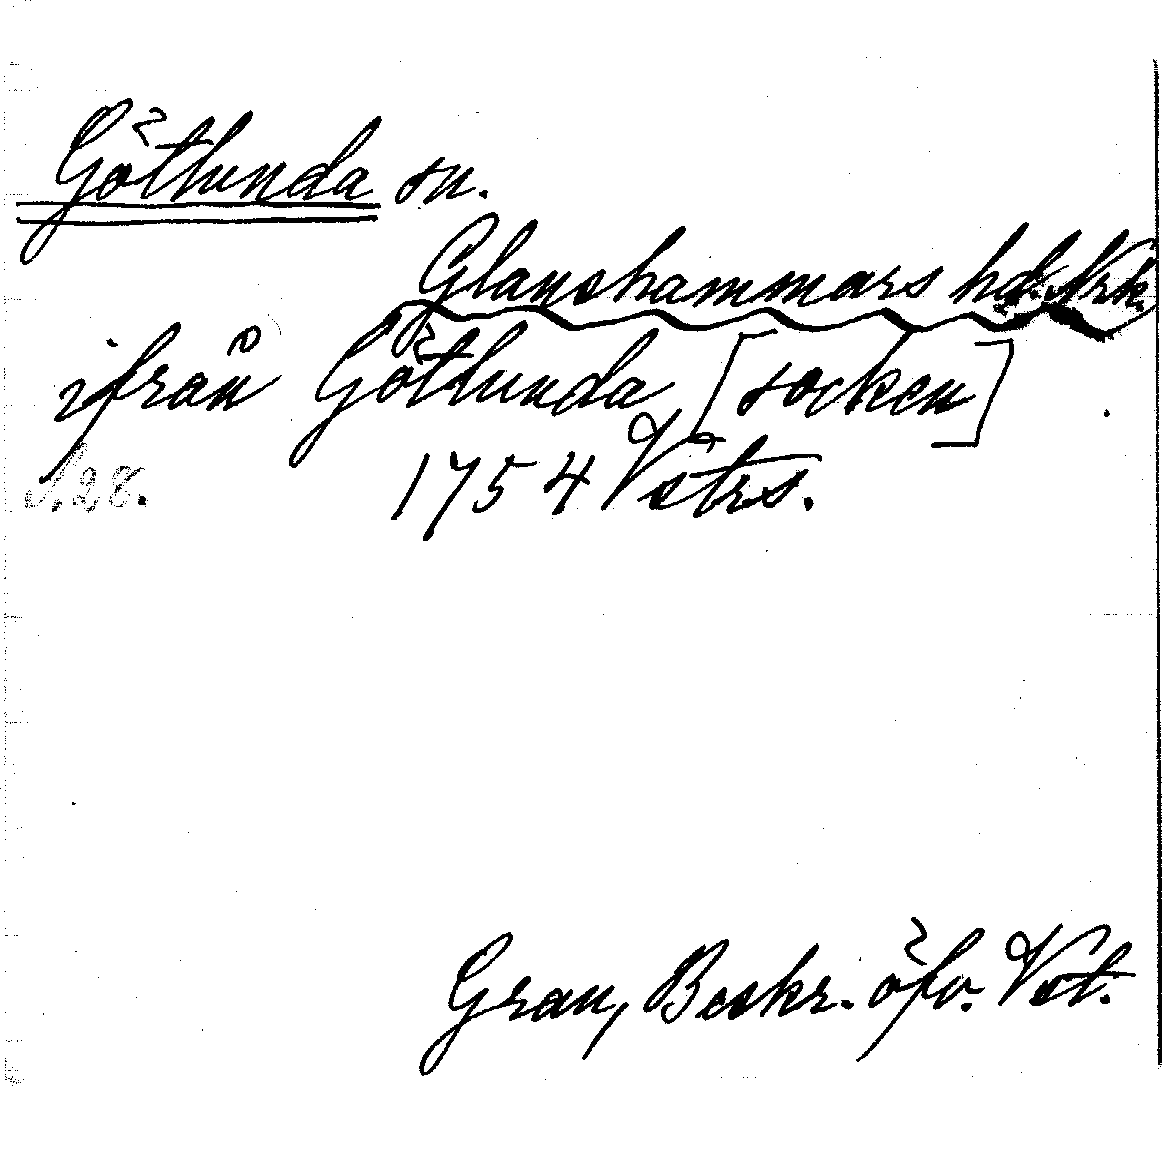 Götlunda sn.
Glanshammars hd. Nrk.
ifrån Götlunda [socken]
S. 28. 1754 Vstrs.
Grau, Beskr. öfv. Vst.